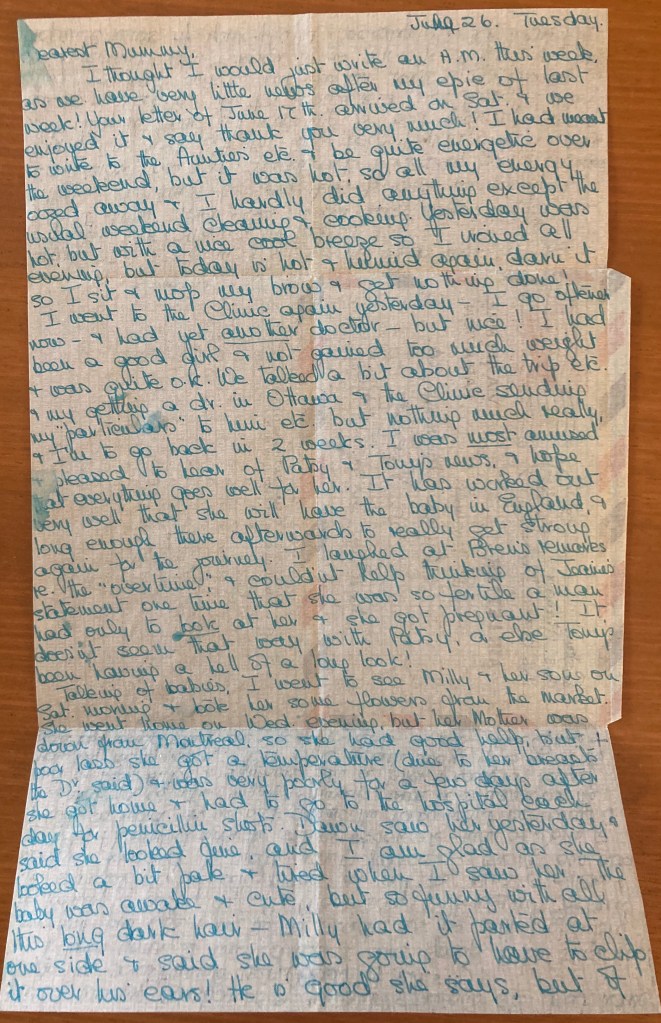 June 26. Tuesday.
Dearest Mummy,
I thought I would just write an A.M. this week,
as we have very little news after my epic of last
week! Your letter of June 17th. arrived on Sat. & we
enjoyed it & say thank you very much! I had meant
to write to the Aunties etc. & be quite energetic over
the weekend, but it was hot, so all my energy
oozed away & I hardly did anything except the
usual weekend cleaning & cooking. Yesterday was
hot, but with a nice cool breeze so I ironed all
evening, but today is hot & humid again, darn it
so I sit & mop my brow & get nothing done!
I went to the Clinic again yesterday - I go oftener
now - & had yet another doctor - but nice! I had
been a good girl & not gained too much weight
& was quite o.k. We talked a bit about the trip etc.
& my getting a dr. in Ottawa & the Clinic sending
my "particulars" to him etc. but nothing much really,
& I'm to go back in 2 weeks. I was most amused
& pleased to hear of Patsy & Tony's news, & hope
that everything goes well for her. It has worked out
very well that she will have the baby in England, &
long enough there afterwards to really get strong
again for the journey. I laughed at remarks
re. the "overtime" & couldn't help thinking of
statement one time that she was so fertile a man
had only to look at her & she got pregnant! It
doesn't seem that way with Patsy, or else Tony's
been having a hell of a long look!
Talking of babies, I went to see Milly & her son on
Sat. morning & took her some flowers from the market.
She went home on Wed. evening, but her Mother was
down from Montreal, so she had good help, but
poor lass she got a temperature (due to her breasts
the Dr. said) & was very poorly for a few days after
she got home & had to go to the hospital each
day for penicillin shots. saw her yesterday &
said she looked fine, and I am glad as she
looked a bit pale & tired when I saw her. The
baby was awake & cute, but so funny with all
this long dark hair - Milly had it parted at
one side & said she was going to have to clip
it over his ears! He is good she says, but of